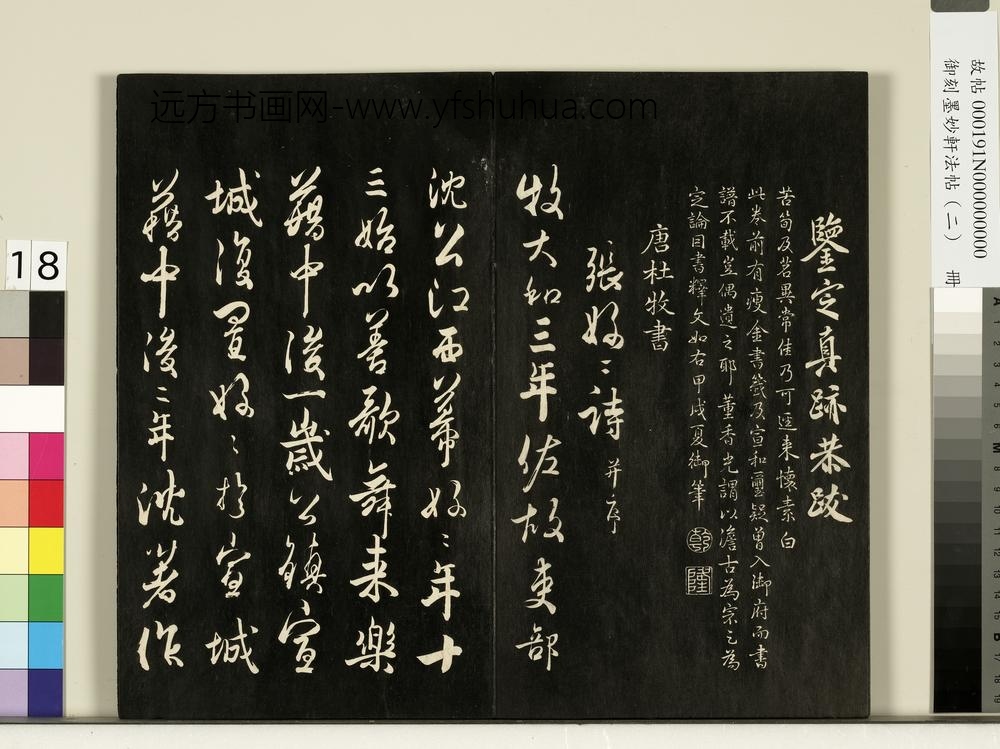 远方书画网-www.yfshuhua.com
故帖 000191N000000000
御刻墨妙軒法帖（二） 冊
18
鑒定真跡恭跋
苦筍及茗異常佳乃可逕来懷素白
此卷前有瘦金書籤及宣和璽疑曾入御府而書
譜不載豈偶遺之耶董香光謂以澹古為宗之為
定論因書釋文如右甲戌夏御筆
乾
隆
唐杜牧書
張好〻詩 并序
牧大和三年佐故吏部
沈公江西幕好〻年十
三始以善歌舞来樂
籍中後一歲公鎮宣
城復置好〻於宣城
籍中後二年沈著作